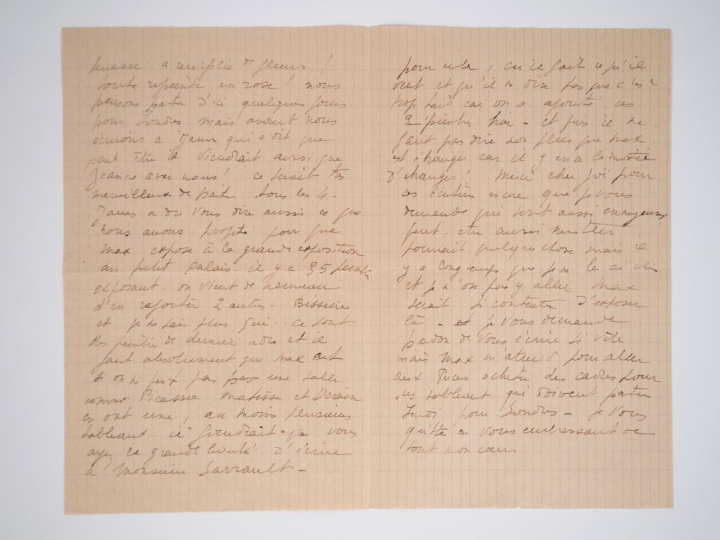 remplie de fleurs !
toute repeinte en rose ! nous
pensons partir d'ici quelques jours
pour Londres mais avant nous
écrivons à James qui a dit que
peut être il viendrait aussi que
Jeanne avec nous ! ce serait très
merveilleux de partir tous les 4.
James a du vous dire aussi ce que
nous avons projeté pour que
max expose à la grande exposition
au petit Palais il y a 95
exposant. on vient de nouveau
d'en rajouter 2 autres. Bissière
et je ne sais plus qui. ce sont
des peintres de dernier ordre et il
faut absolument que max ait
si on ne peut pas une salle
comme Picasso matisse et Derain
en ont une, au moins plusieurs
tableaux. il faudrait que vous
ayez la grande bonté d'écrire
à monsieur Sarrault. —
pour cela, car il fait ce qu'il
veut et qu'il ne dise pas que c'est
trop tard car on a ajouté ces
2 peintres hier - et puis il ne
faut pas dire non plus que max
est étranger car il y en a la moitié
d'étranger ! merci cher Joë pour
ces choses encore que je vous
demande qui sont aussi ennuyeuses
peut. etre aussi
pourrait quelque chose mais il
y a longtemps que je ne l'ai vu
et je n'ose pas y aller max
serait si content d'exposer
là - et je vous demande
pardon de vous écrire si vite
mais max m'attend pour aller
aux Puces acheter des cadres pour
ses tableaux qui doivent partir
lundi pour Londres - je vous
quitte en vous embrassant de
tout mon cœur